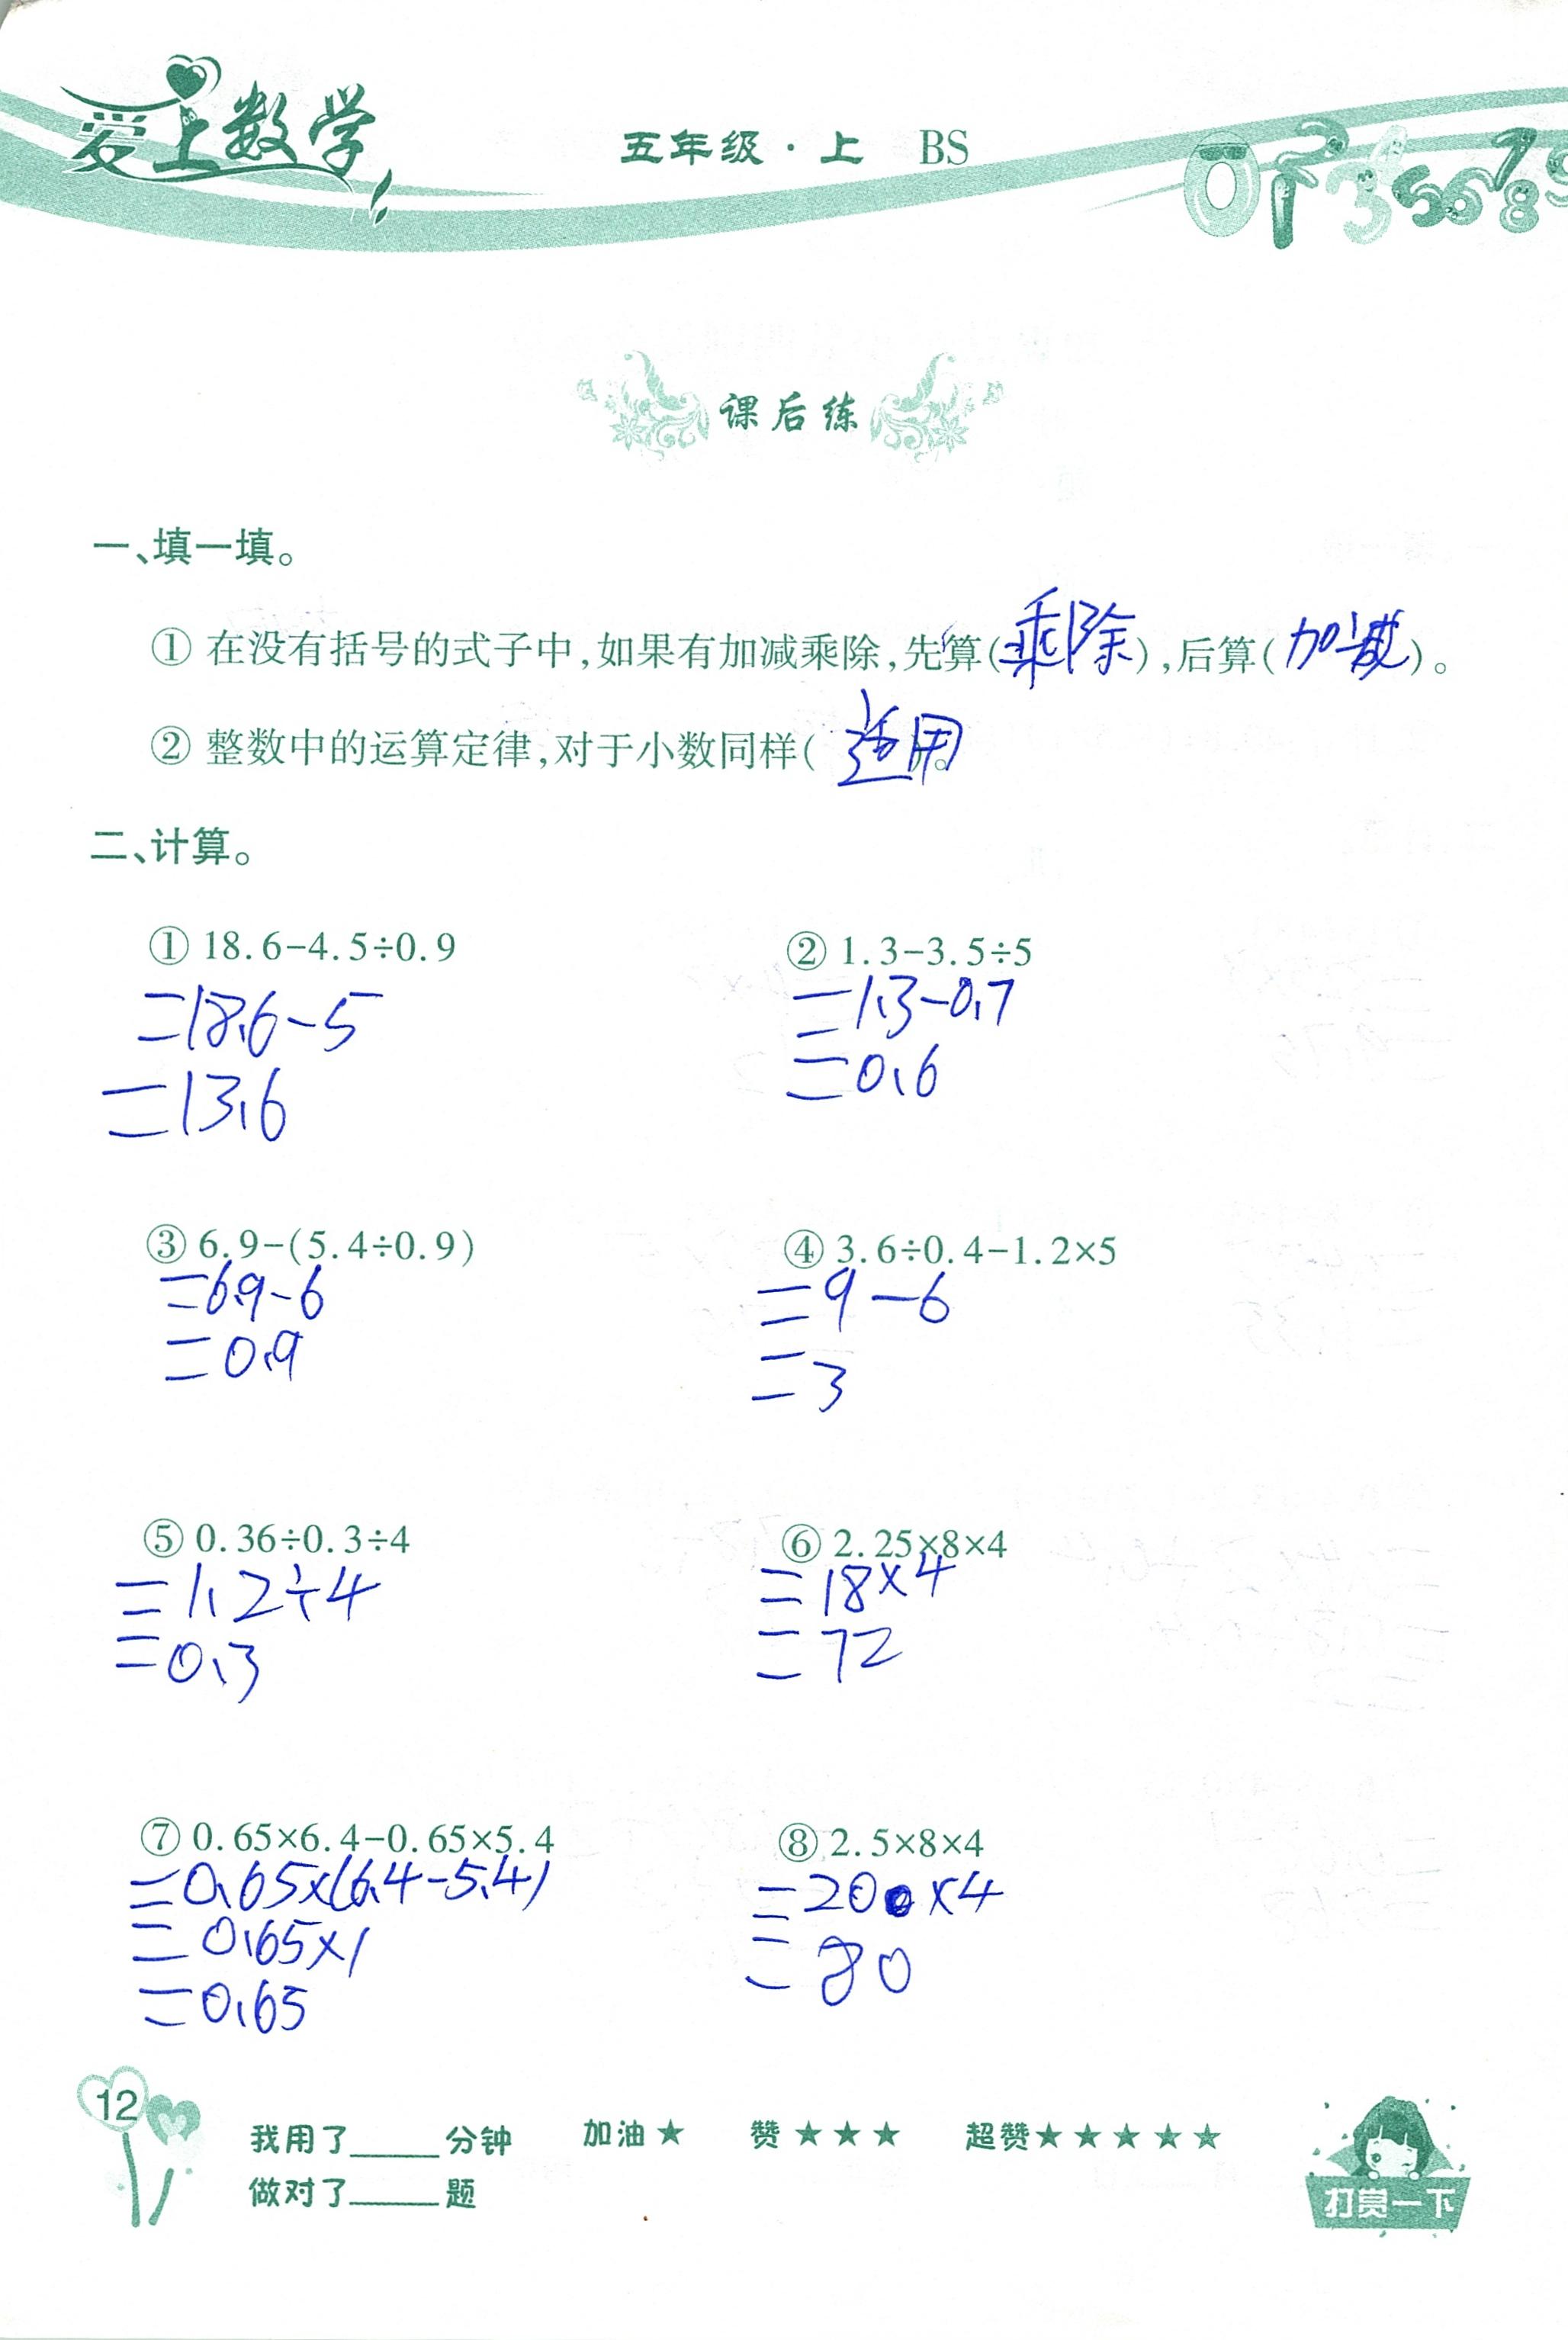 爱上数学 五年级·上 BS
课后练
一、填一填。
① 在没有括号的式子中,如果有加减乘除,先算(乘除),后算(加减)。
② 整数中的运算定律,对于小数同样(适用)。
二、计算。
① 18.6-4.5÷0.9 ② 1.3-3.5÷5
=18.6-5 =1.3-0.7
=13.6 =0.6
③ 6.9-(5.4÷0.9) ④ 3.6÷0.4-1.2×5
=6.9-6 =9-6
=0.9 =3
⑤ 0.36÷0.3÷4 ⑥ 2.25×8×4
=1.2÷4 =18×4
=0.3 =72
⑦ 0.65×6.4-0.65×5.4 ⑧ 2.5×8×4
=0.65×(6.4-5.4) =20×4
=0.65×1 =80
=0.65
12
我用了____分钟 加油★ 赞★★★ 超赞★★★★★
做对了____题 打赏一下